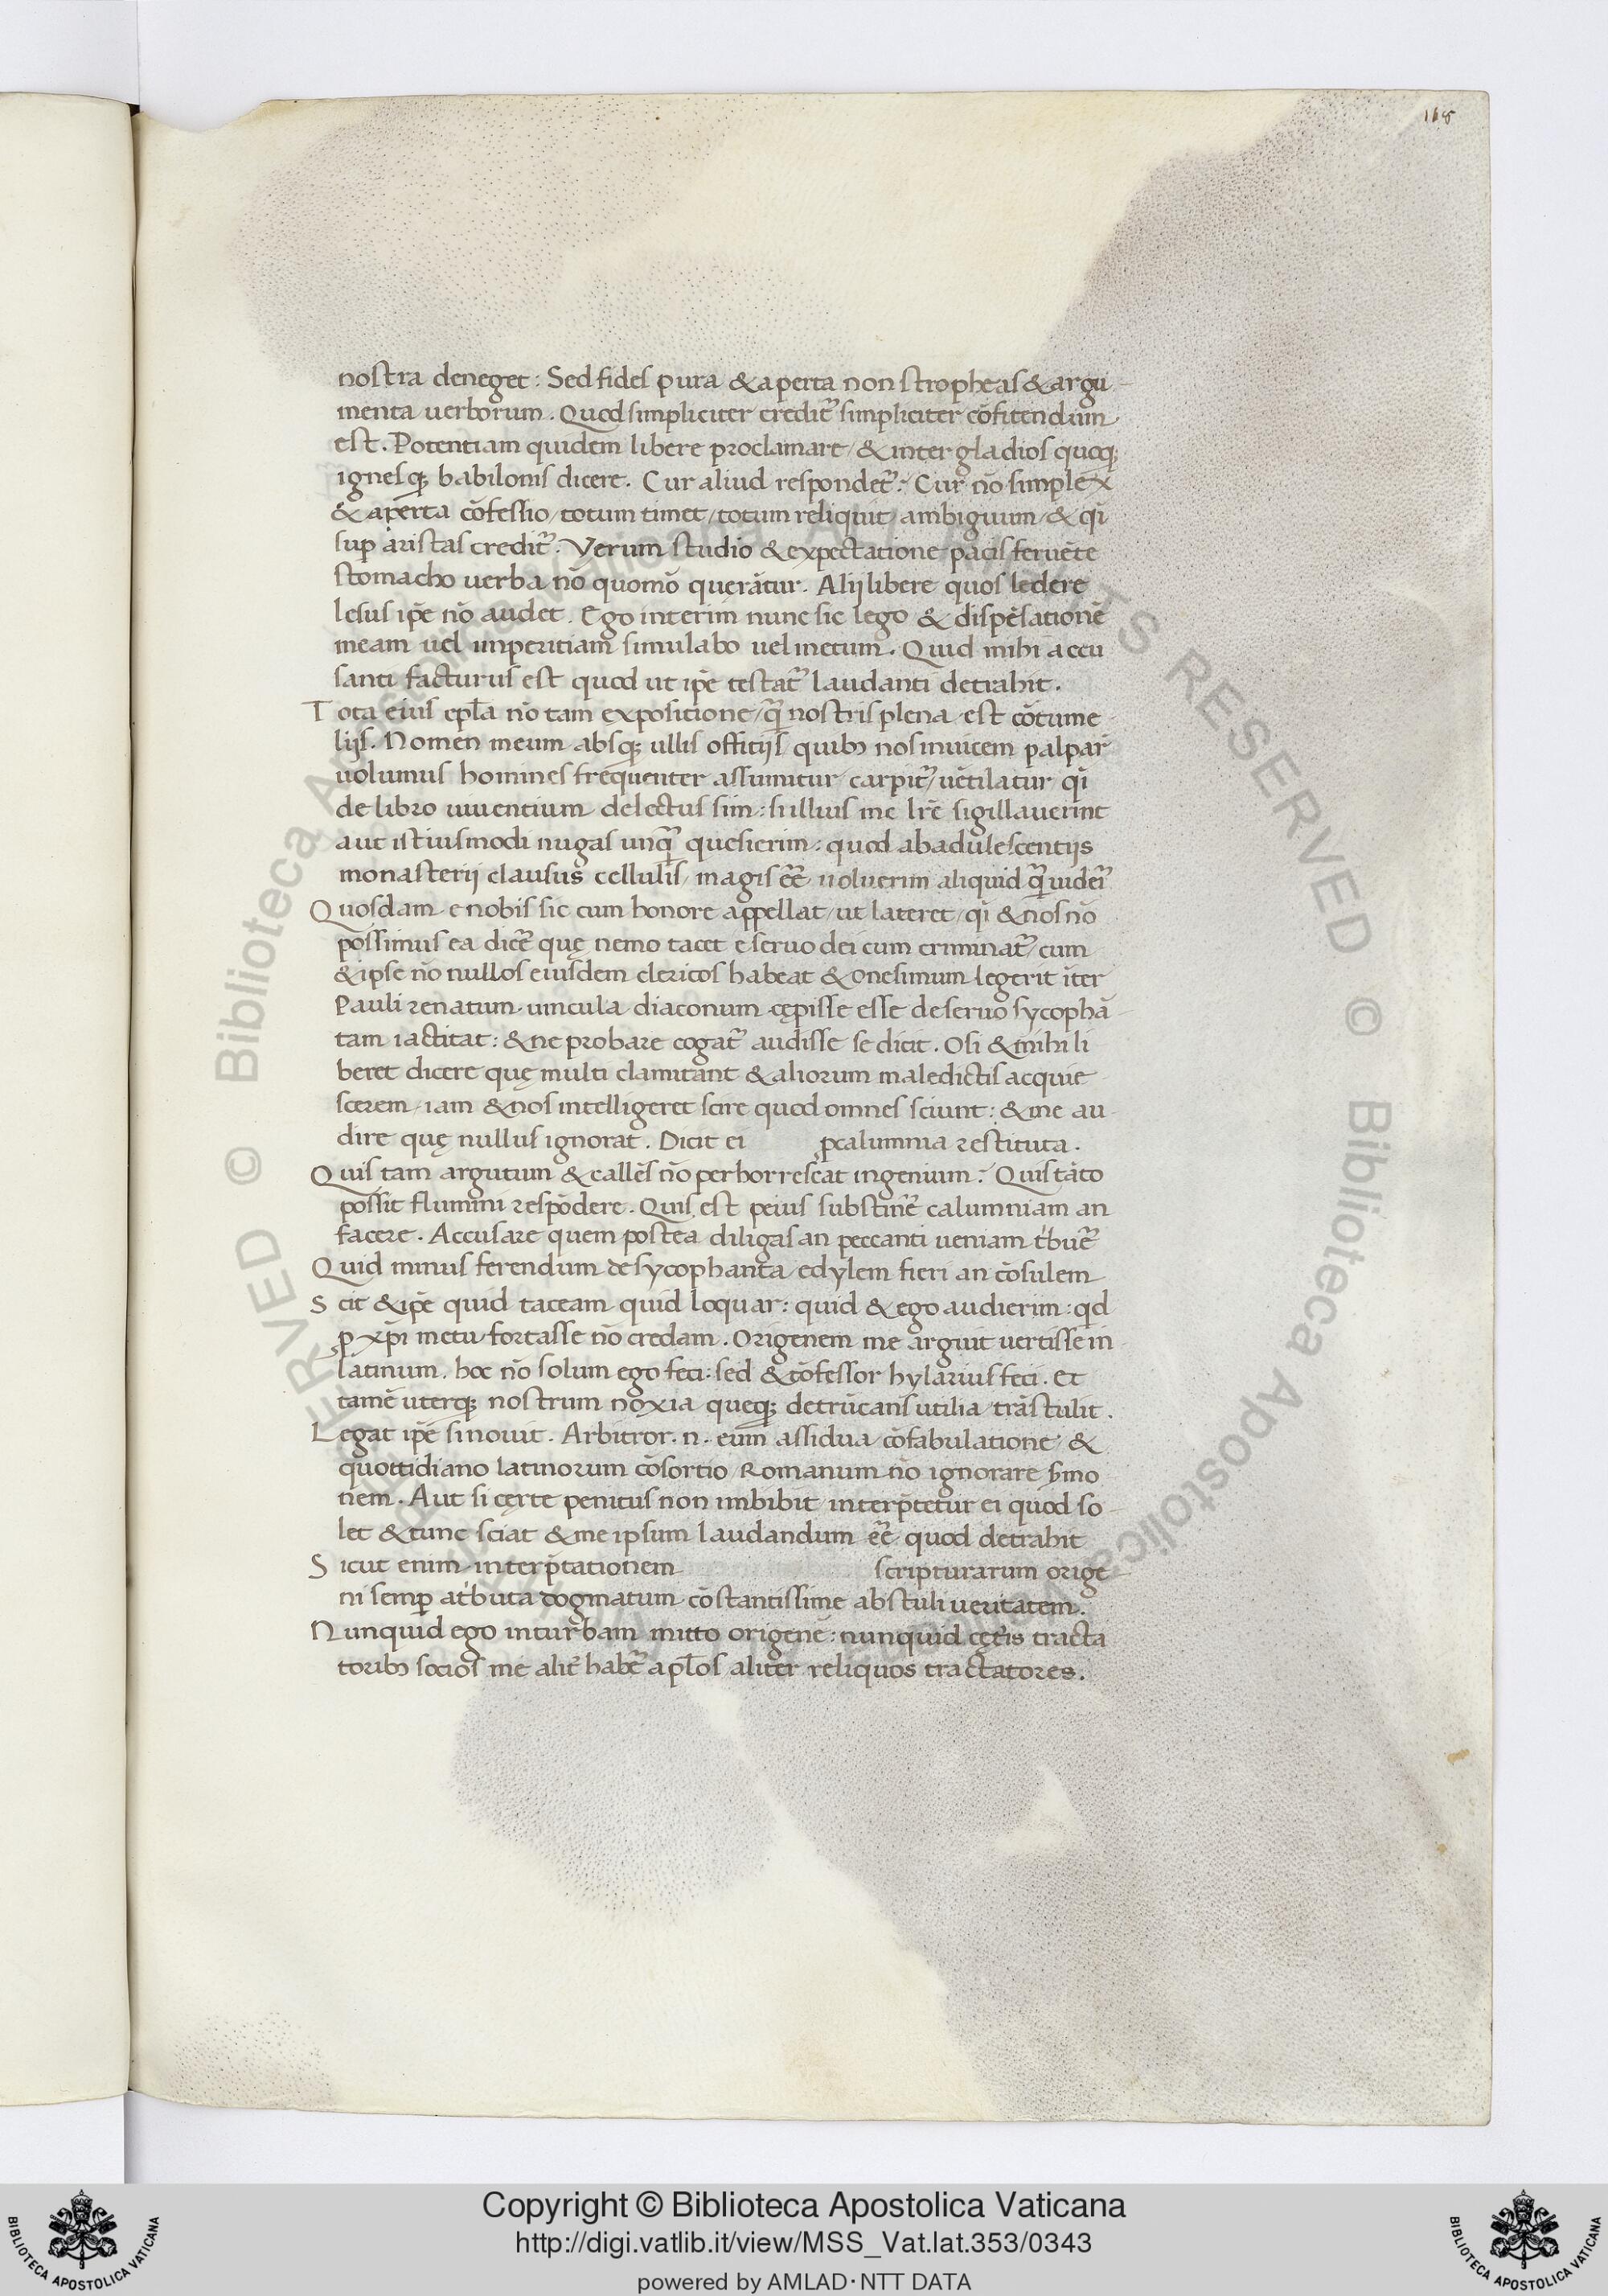 168
nostra deneget: Sed fides pura & aperta non stropheas & argu
menta uerborum. Quod simpliciter credit᷑ simpliciter cōfitendum
est. Potentiam quidem libere proclamare / & inter gladios quoq;
ignesq; babilonis dicere. Cur aliud respondet᷑: Cur nō simplex
& aperta cōfessio / totum timet / totum reliquit / ambiguum / & qi̓
suꝑ aristas credit᷑. Verum studio & expectatione pacis feruēte
stomacho uerba nō quomō querātur. Alij libere quos ledere
lesus ip̄e nō audet. Ego interim nunc sic lego & dispēsationē
meam uel imperitiam simulabo uel metum. Quid mihi accu
santi facturus est quod ut ip̄e testat᷑ laudanti detrahit.
Tota eius ep̄la nō tam expositione / q̄ nostris plena est cōtume
lijs. Nomen meum absq; ullis offitijs / quibȝ nos inuicem palpar̄
uolumus homines frequenter assumitur / carpit᷑ / uētilatur qi̓
de libro uiuentium delectus sim: si illius me lr̄e sigillauerint
aut istiusmodi nugas unq̄ quesierim: quod ab adulescentijs
monasterij clausus cellulis / magis eē᷑ uoluerim aliquid q̄ uideri᷑
Quosdam e nobis sic cum honore appellat / ut lateret / qi̓ & nos nō
possimus ea dice᷑ quę nemo tacet e seruo dei cum criminat᷑ / cum
& ipse nō nullos eiusdem clericos habeat & Onesimum legerit īter
Pauli renatum uincula diaconum cępisse esse de seruo sycophā
tam iactitat: & ne probare cogat᷑ audisse se dicit. O si & mihi li
beret dicere quę multi clamitant & aliorum maledictis acquie
scerem / iam & nos intelligeret scire quod omnes sciunt: & me au
dire quę nullus ignorat. Dicit ei ꝓcalumnia restituta.
Quis tam argutum & callēs nō perhorrescat ingenium: Quis tāto
possit flumini respōdere. Quis est peius substine᷑ calumniam an
facere. Accusare quem postea diligas an peccanti ueniam tͥbue᷑
Quid minus ferendum de sycophanta edylem fieri an cōsulem
Scit & ip̄e quid taceam quid loquar: quid & ego audierim: qd
ꝓ xp̄i metu fortasse nō credam. Origenem me arguit uertisse in
latinum. hoc nō solum ego feci: sed & cōfessor hylarius feci. Et
tamē uterq; nostrum noxia queq; detrūcans utilia trāstulit.
Legat ip̄e si nouit. Arbitror .n. eum assidua cōfabulatione &
quottidiano latinorum cōsortio Romanum nō ignorare ẜmo
nem. Aut si cęrte penitus non imbibit interp̄tetur ei quod so
let & tunc sciat & me ipsum laudandum eē᷑ quod detrahit
Sicut enim interp̄tationem scripturarum orige
ni semꝑ atͥbuta dogmatum cōstantissime abstuli ueritatem.
Nunquid ego in turbam mitto origenē: nunquid cęt̄is tracta
toribȝ socios me alit̄ habe᷑ apl̄os aliter reliquos tractatores.
© Biblioteca Apostolica Vaticana ALL RIGHTS RESERVED © Biblioteca Apostolica Vaticana
Copyright © Biblioteca Apostolica Vaticana
http://digi.vatlib.it/view/MSS_Vat.lat.353/0343
powered by AMLAD·NTT DATA
BIBLIOTECA APOSTOLICA VATICANA
BIBLIOTECA APOSTOLICA VATICANA